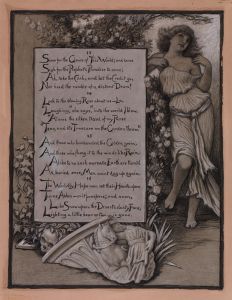 Some for the Glories of This World; and some
Sigh for the Prophet's Paradise to come;
Ah, take the Cash, and let the Credit go,
Nor heed the rumble of a distant Drum!
Look to the blowing Rose about us—"Lo,
Laughing," she says, "into the world I blow,
At once the silken tassel of my Purse
Tear, and its Treasure on the Garden throw."
And those who husbanded the Golden grain,
And those who flung it to the winds like Rain,
Alike to no such aureate Earth are turn'd
As, buried once, Men want dug up again.
The Worldly Hope men set their Hearts upon
Turns Ashes—or it prospers; and anon,
Like Snow upon the Desert's dusty Face,
Lighting a little hour or two—is gone.